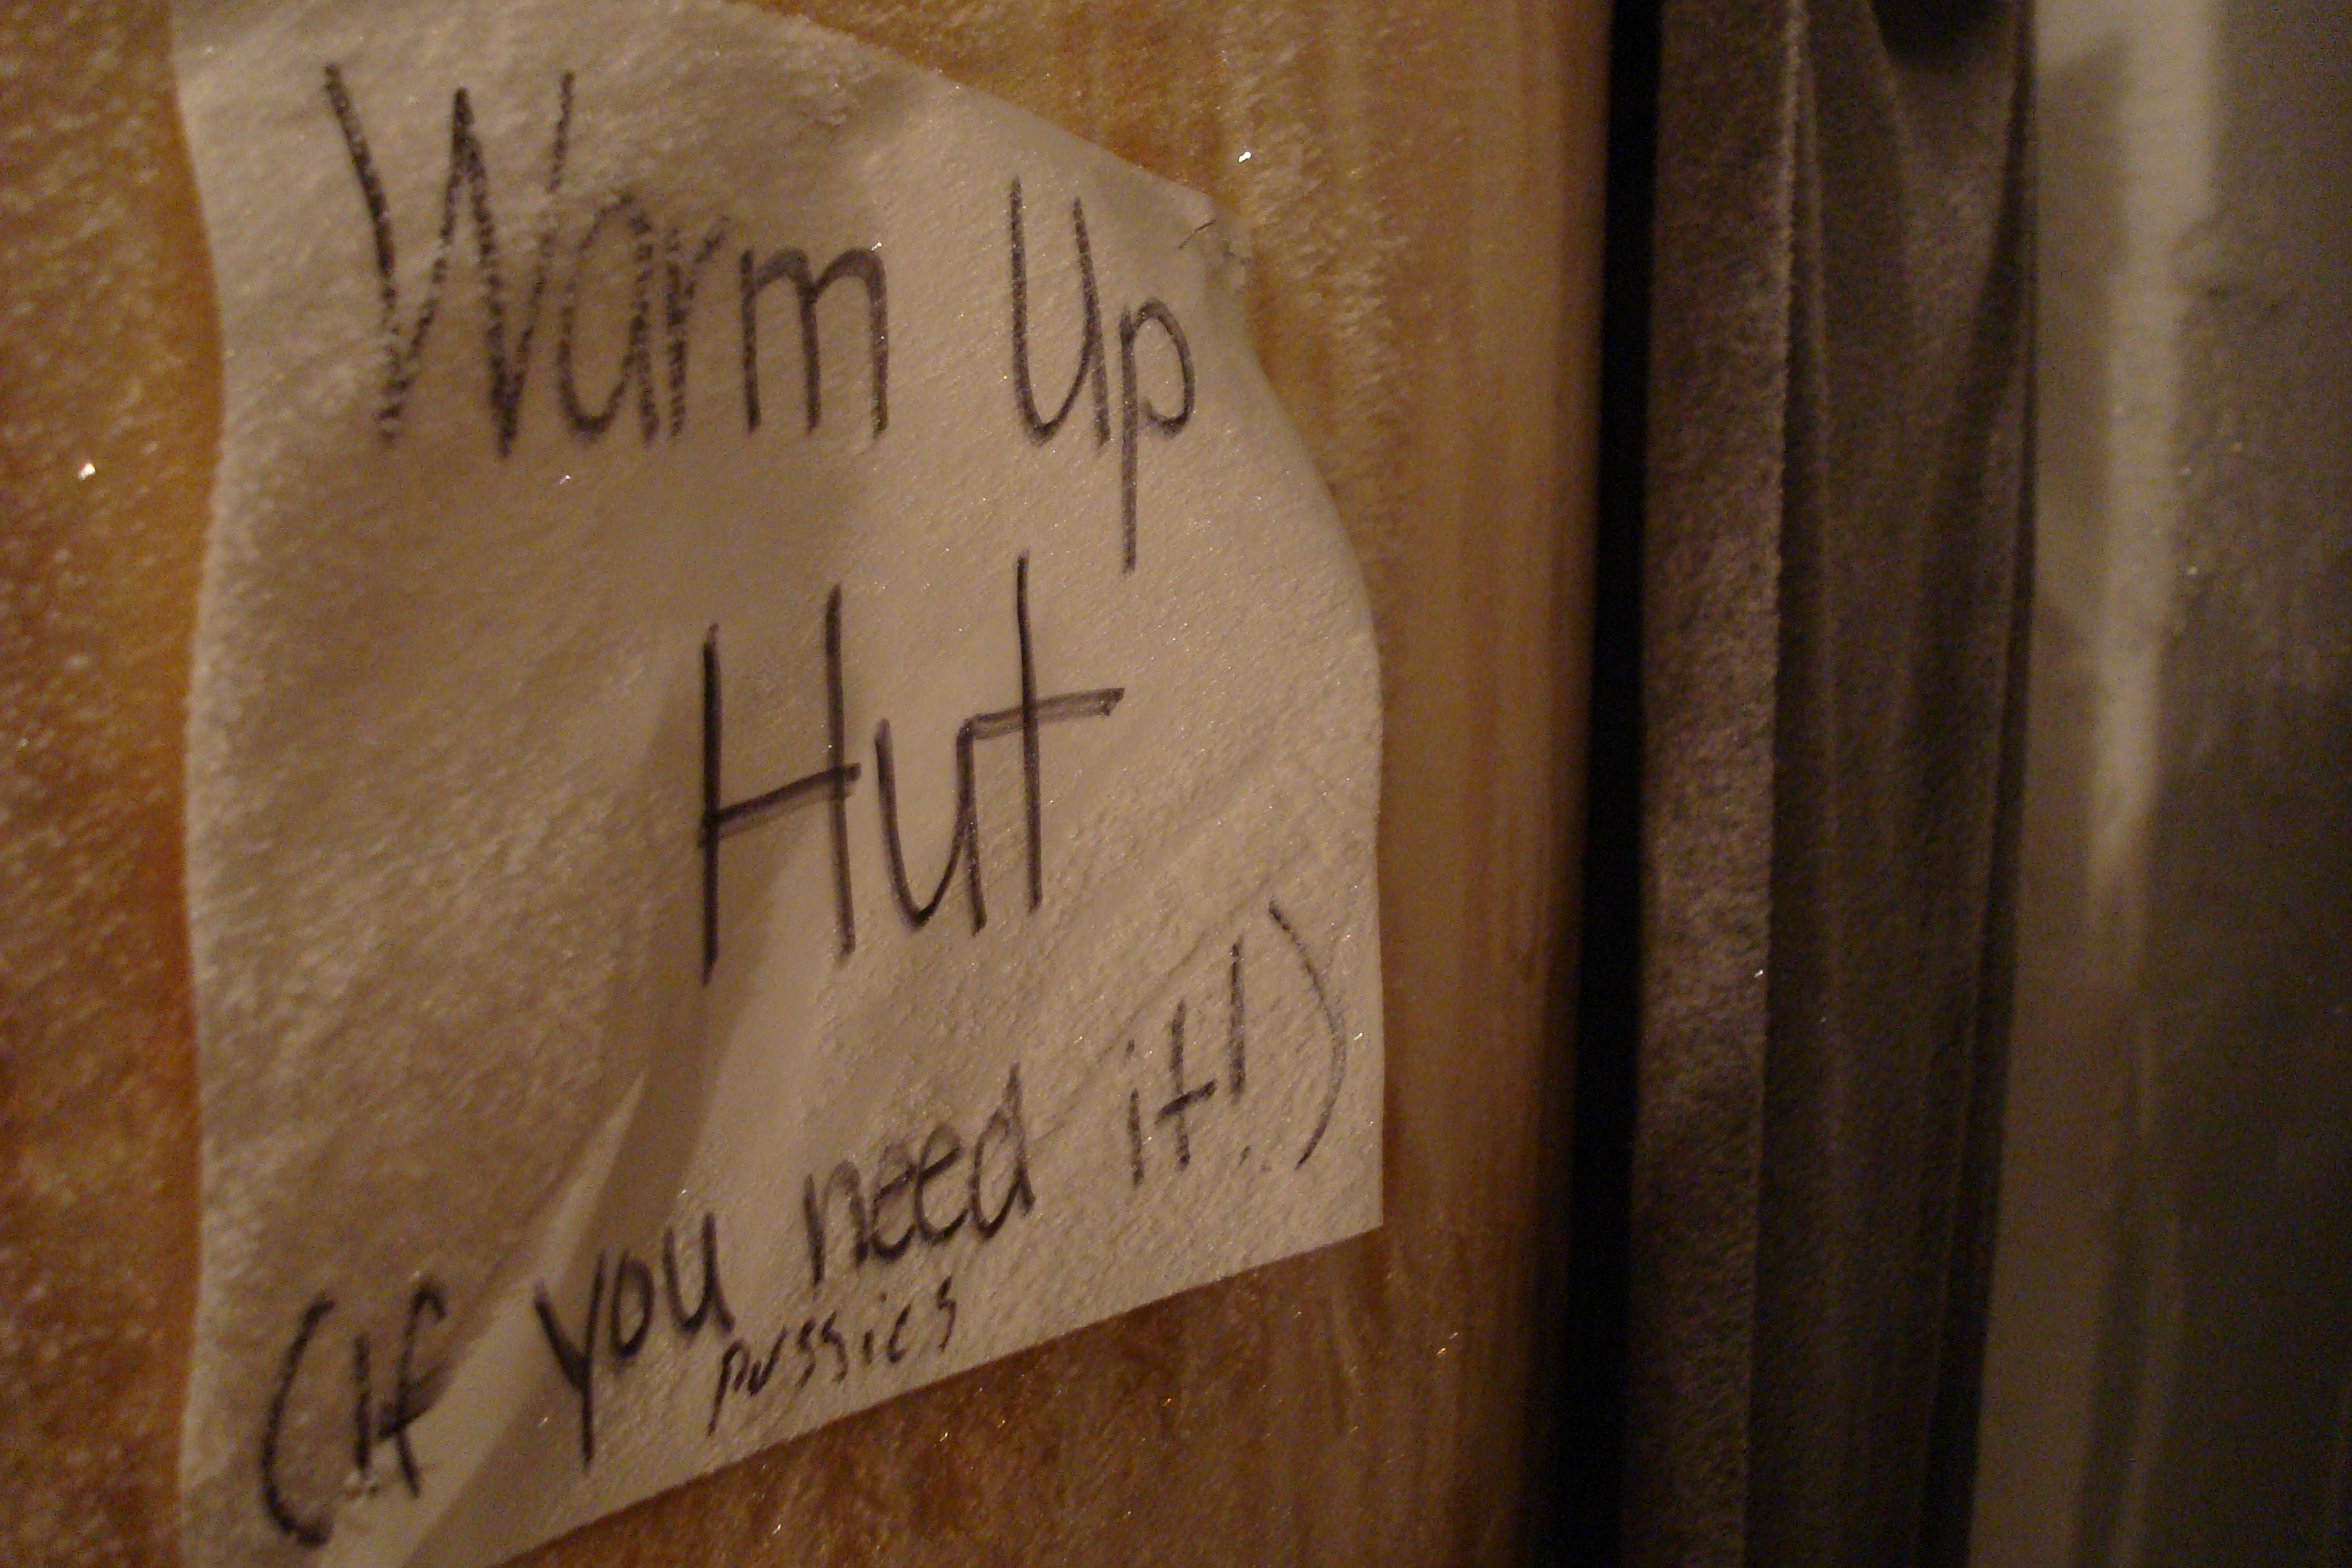 Warm Up
Hut
(If you need it!)
pussies